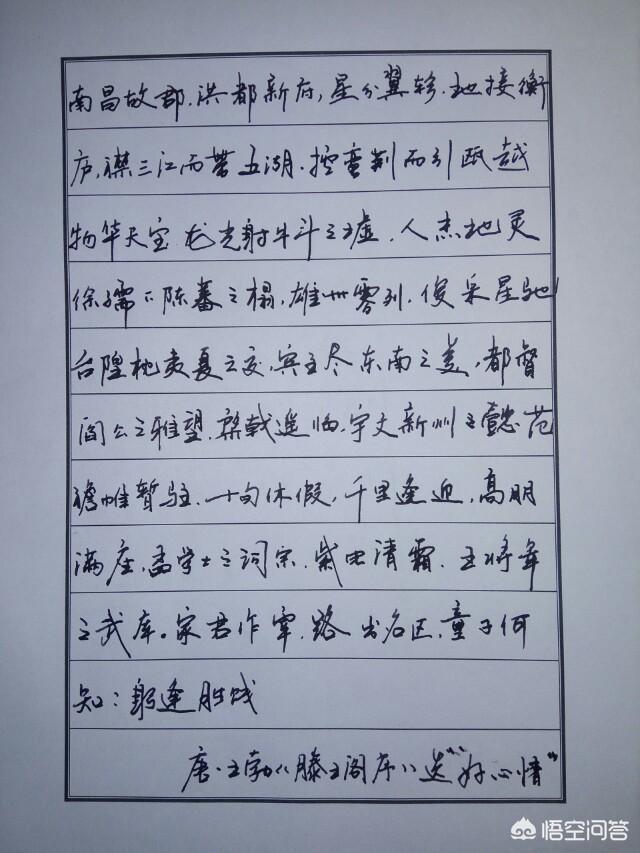 南昌故郡.洪都新府,星分翼轸.地接衡
庐,襟三江而带五湖.控蛮荆而引瓯越
物华天宝 龙光射牛斗之墟.人杰地灵
徐孺下陈蕃之榻,雄州雾列.俊采星驰
台隍枕夷夏之交,宾主尽东南之美,都督
阎公之雅望.棨戟遥临,宇文新州之懿范
襜帷暂驻.十旬休假,千里逢迎,高朋
满座,孟学士之词宗.紫电清霜.王将军
之武库。家君作宰.路出名区,童子何
知:躬逢胜饯
唐.王勃《滕王阁序》送"好心情"
悟空问答